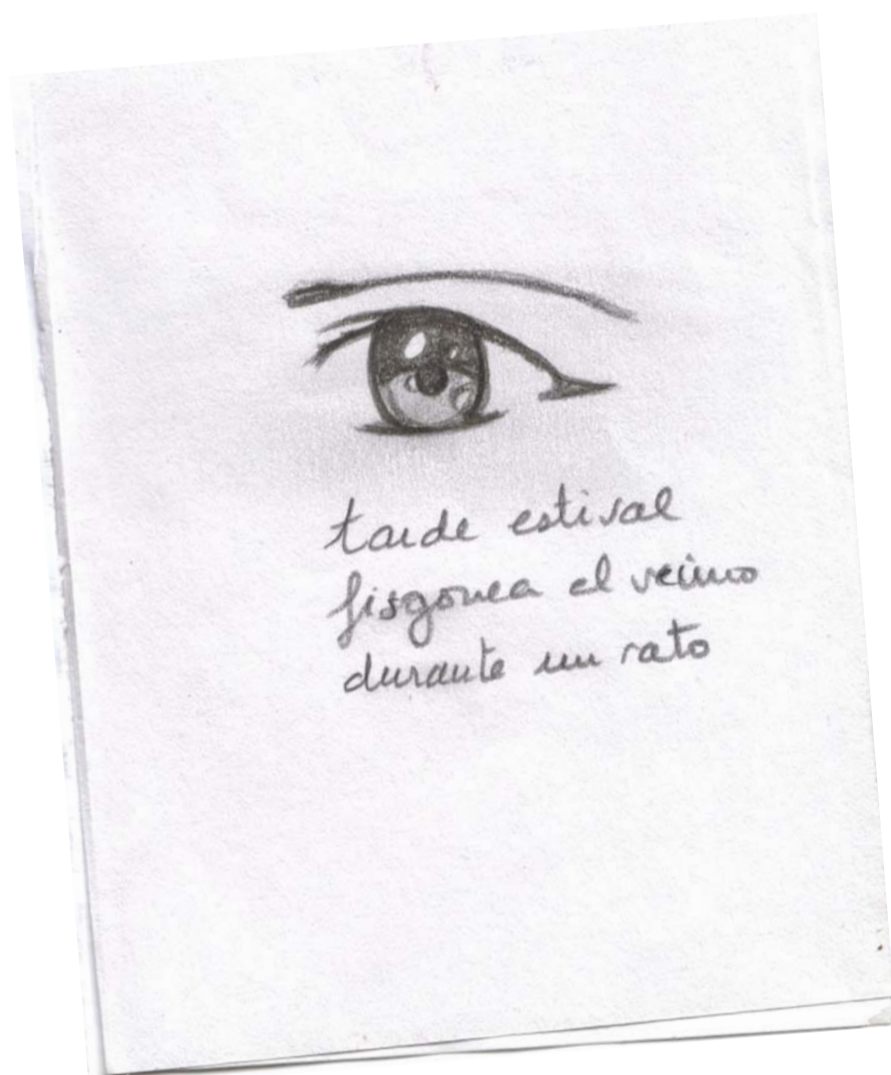 tarde estival
fisgonea el vecino
durante un rato